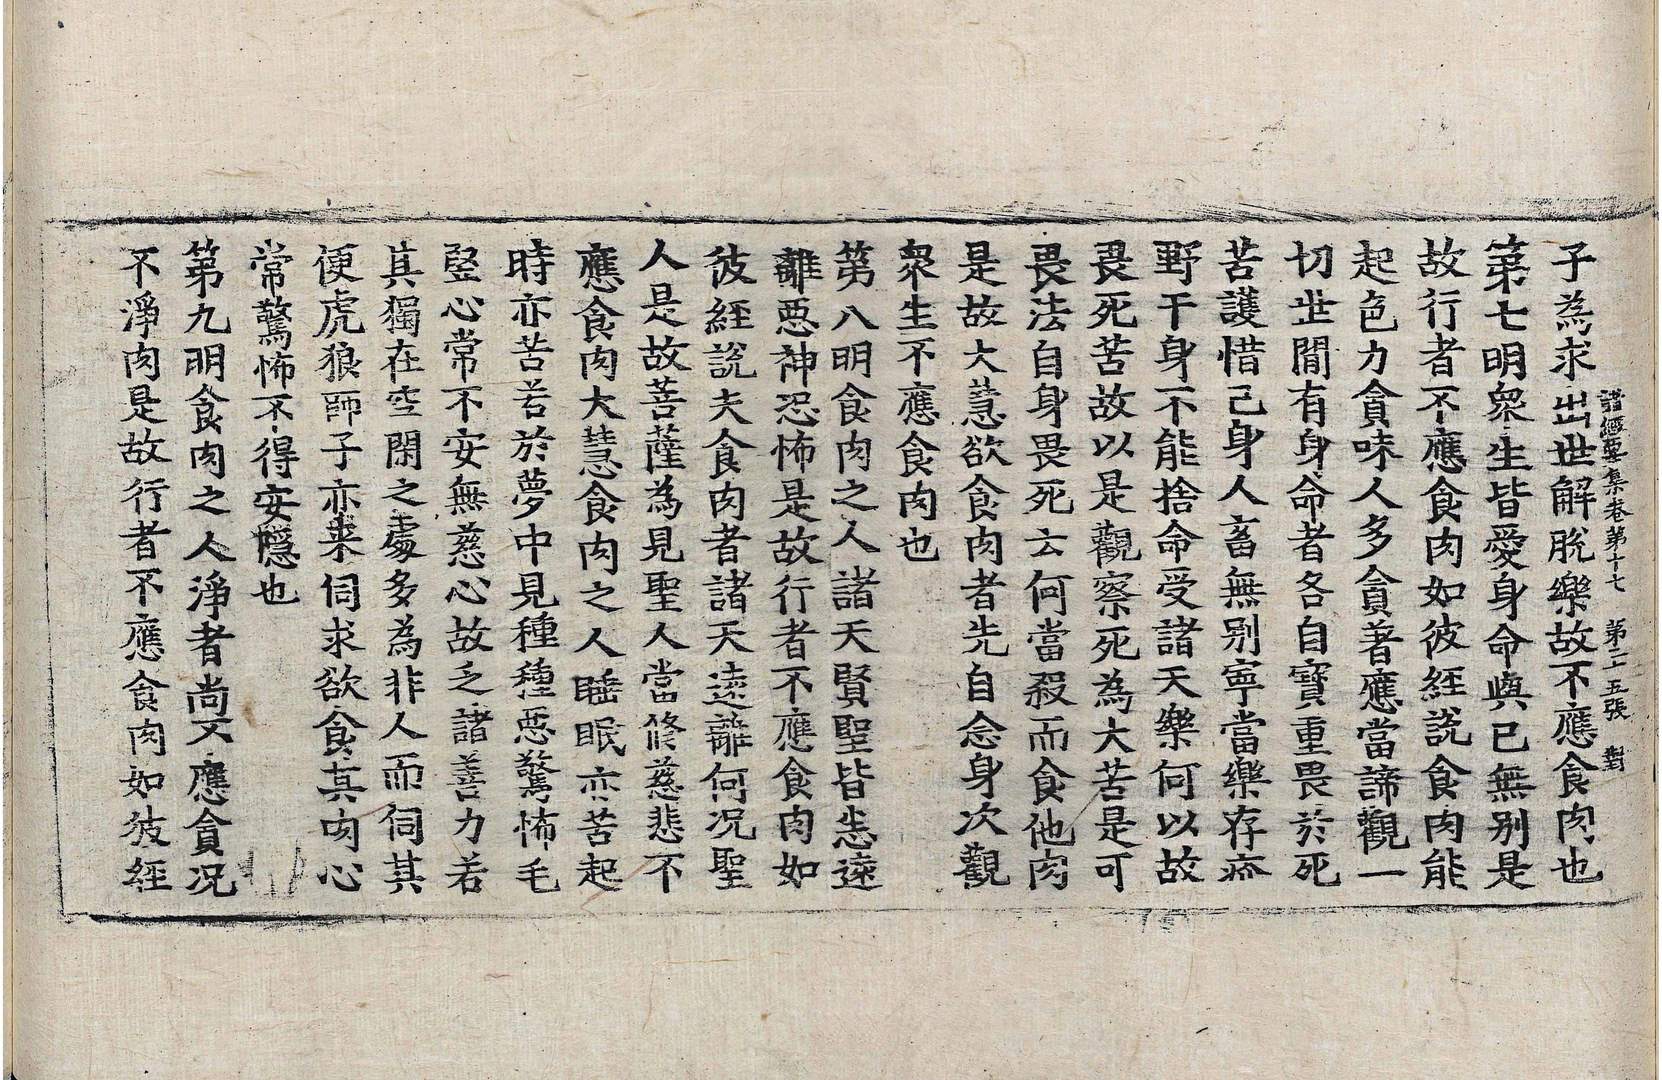 子為求出世解脫樂故不應食肉也
諸經要集卷第十七 第二十五張 對
第七明衆生皆愛身命與已無別是
故行者不應食肉如彼經說食肉能
起色力貪味人多貪著應當諦觀一
切世閒有身命者各自寶重畏於死
苦護惜己身人畜無別寧當樂存疥
野干身不能捨命受諸天樂何以故
畏死苦故以是觀察死為大苦是可
畏法自身畏死云何當殺而食他肉
是故大慧欲食肉者先自念身次觀
衆生不應食肉也
第八明食肉之人諸天賢聖皆悉遠
離惡神恐怖是故行者不應食肉如
彼經說夫食肉者諸天遠離何况聖
人是故菩薩為見聖人當修慈悲不
應食肉大慧食肉之人睡眠亦苦起
時亦苦若於夢中見種種惡驚怖毛
竪心常不安無慈心故乏諸善力若
其獨在空閑之處多為非人而伺其
便虎狼師子亦来伺求欲食其肉心
常驚怖不得安隱也
第九明食肉之人淨者尚不應貪况
不淨肉是故行者不應食肉如彼經